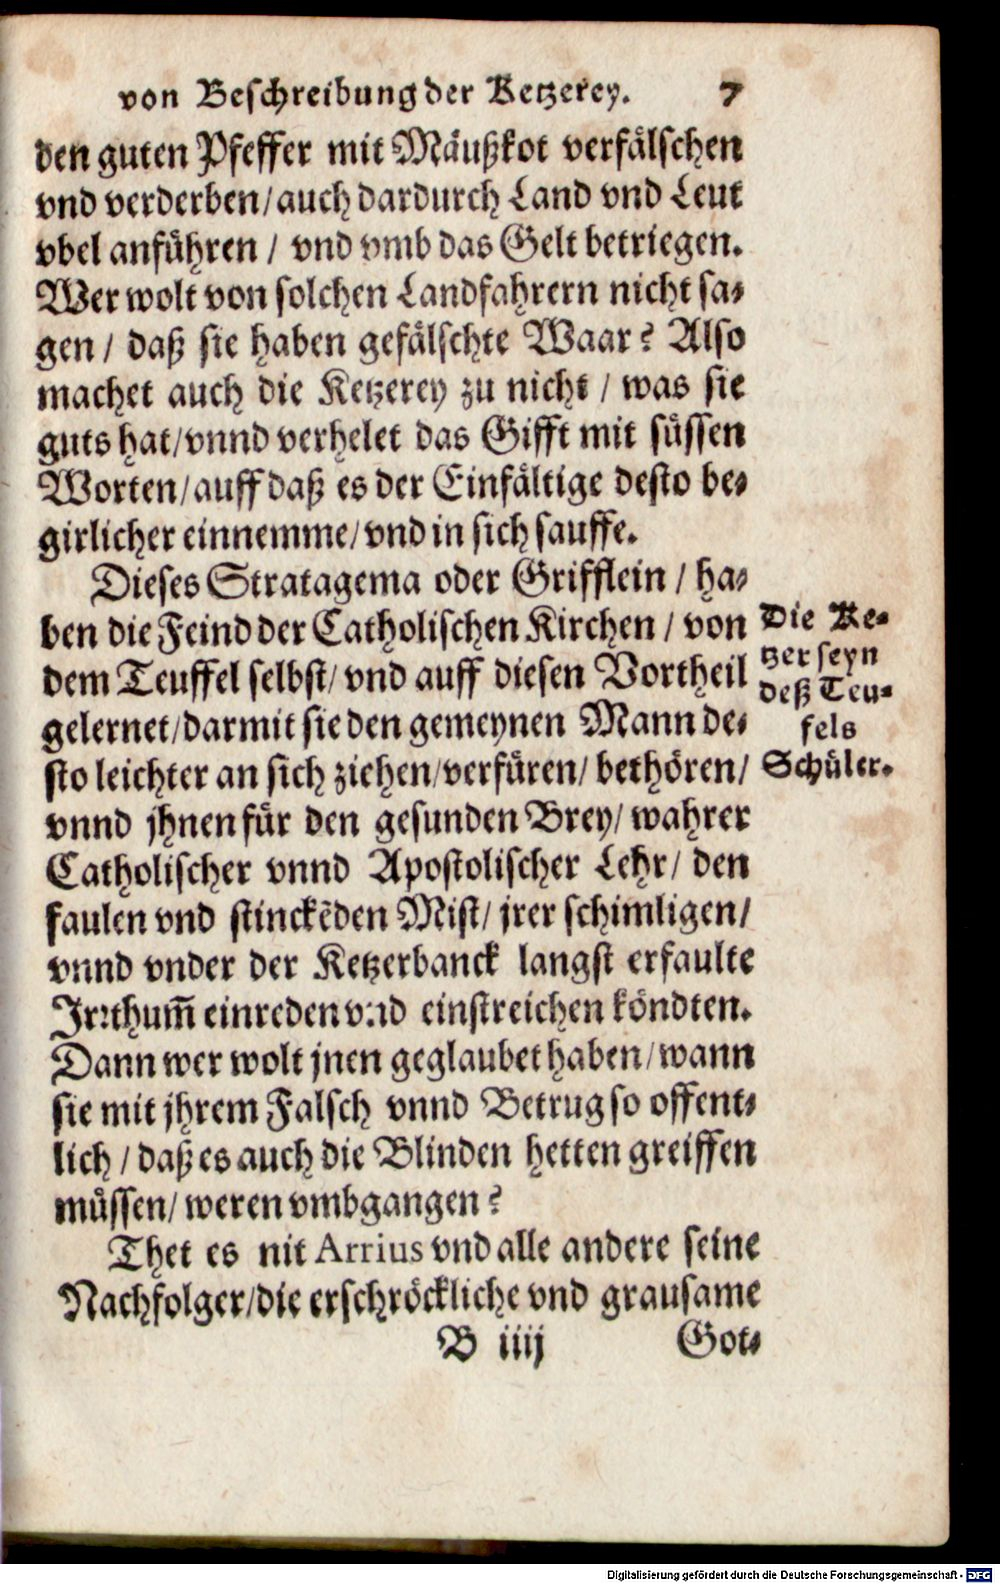 von Beschreibung der Ketzerey. 7
den guten Pfeffer mit Mäußkot verfälschen
vnd verderben/auch dardurch Land vnd Leut
vbel anführen / vnd vmb das Gelt betriegen.
Wer wolt von solchen Landfahrern nicht sa-
gen / daß sie haben gefälschte Waar? Also
machet auch die Ketzerey zu nicht / was sie
guts hat/vnnd verhelet das Gifft mit süssen
Worten/auff daß es der Einfältige desto be-
girlicher einnemme/vnd in sich sauffe.
Dieses Stratagema oder Grifflein / ha-
ben die Feind der Catholischen Kirchen / von
dem Teuffel selbst/vnd auff diesen Vortheil
gelernet/darmit sie den gemeynen Mann de-
sto leichter an sich ziehen/verfüren/bethören/
vnnd jhnen für den gesunden Brey/wahrer
Catholischer vnnd Apostolischer Lehr/den
faulen vnd stinckēden Mist/jrer schimligen/
vnnd vnder der Ketzerbanck langst erfaulte
Irꝛthum̃ einreden vnd einstreichen köndten.
Dann wer wolt jnen geglaubet haben/wann
sie mit jhrem Falsch vnnd Betrug so offent-
lich / daß es auch die Blinden hetten greiffen
müssen/weren vmbgangen?
Thet es nit Arrius vnd alle andere seine
Nachfolger/die erschröckliche vnd grausame
B iiij Got-
Die Ke-
tzer seyn
deß Teu-
fels
Schüler.
Digitalisierung gefördert durch die Deutsche Forschungsgemeinschaft - DFG